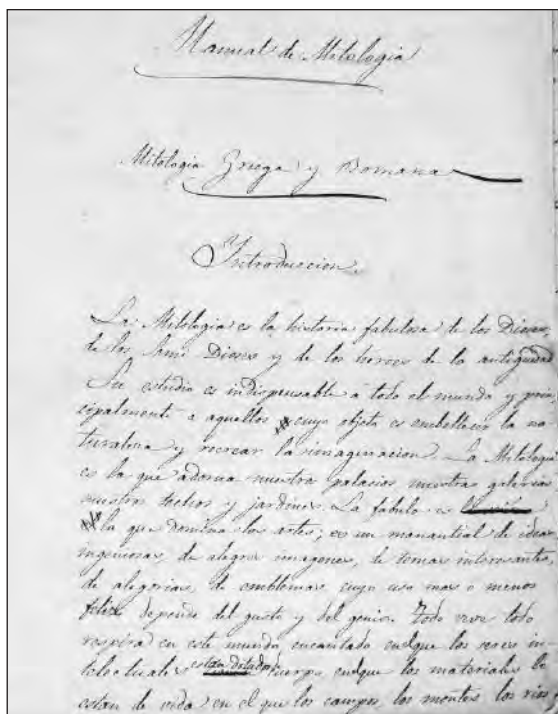 Manual de Mitologia
Mitologia Griega y Romana
Introduccion.
La Mitologia es la historia fabulosa de los Dioses,
de los Semi Dioses y de los heroes de la antiguedad
Su estudio es indispensable a todo el mundo y prin
cipalmente a aquellos cuyo objeto es embellecer la na
turaleza y recrear la imaginacion. La Mitologia
es la que adorna nuestros palacios nuestras galerias
nuestros techos y jardines. La fabula es
la que domina las artes; es un manantial de ideas
ingeniosas, de alegres imagenes, de temas interesantes,
de alegorias, de emblemas cuyo uso mas o menos
feliz depende del gusto y del genio. Todo vive todo
respira en este mundo encantado enelque los seres in
telectuales estan dotados cuerpo enelque los materiales lo
estan de vida en el que los campos, los montes los rios